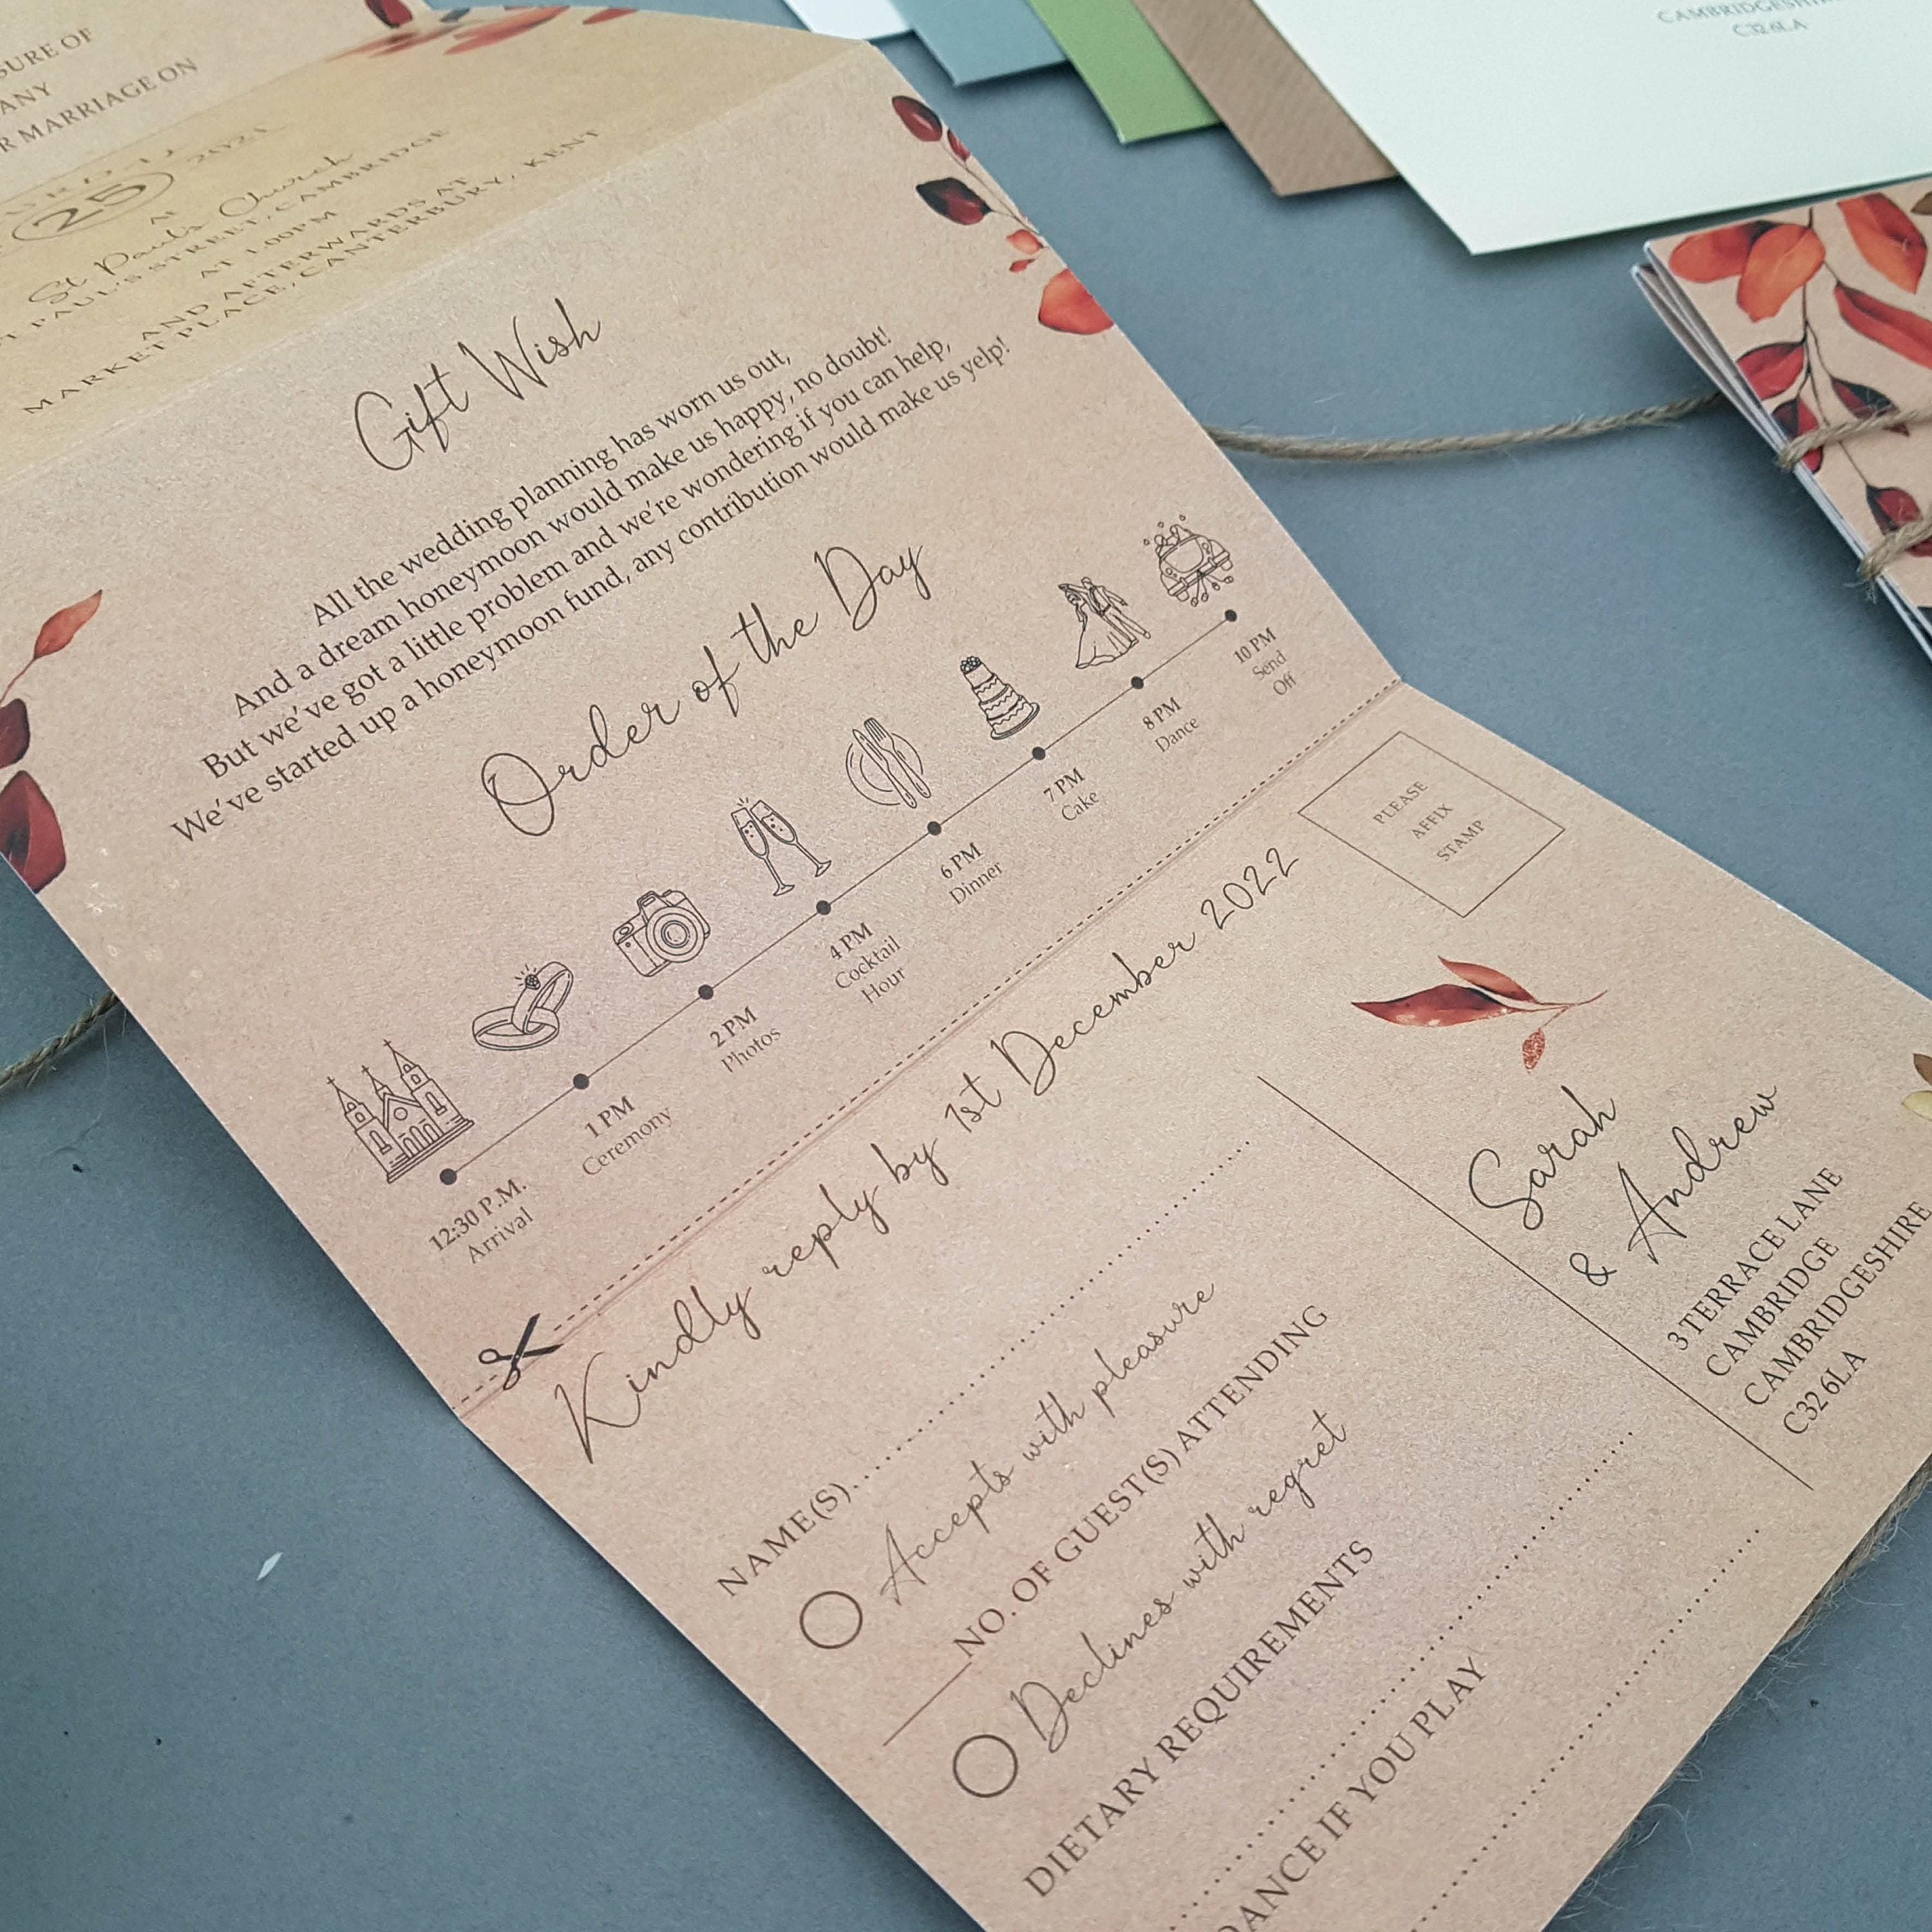 SURE OF
ANY
R MARRIAGE ON
25
2021
AT
St Paul's Church
PAUL'S STREET, CAMBRIDGE
AT 1.00PM
AND AFTERWARDS AT
MARKET PLACE, CANTERBURY, KENT
Gift Wish
All the wedding planning has worn us out,
And a dream honeymoon would make us happy, no doubt!
But we've got a little problem and we're wondering if you can help,
We've started up a honeymoon fund, any contribution would make us yelp!
Order of the Day
12:30 P.M.
Arrival
1 PM
Ceremony
2 PM
Photos
4 PM
Cocktail
Hour
6 PM
Dinner
7 PM
Cake
8 PM
Dance
10 PM
Send
Off
Kindly reply by 1st December 2022
NAME(S)
Accepts with pleasure
NO. OF GUEST(S) ATTENDING
Declines with regret
DIETARY REQUIREMENTS
DANCE IF YOU PLAY
PLEASE
AFFIX
STAMP
Sarah
& Andrew
3 TERRACE LANE
CAMBRIDGE
CAMBRIDGESHIRE
C32 6LA
CAMBRIDGESHIRE
C32 6LA